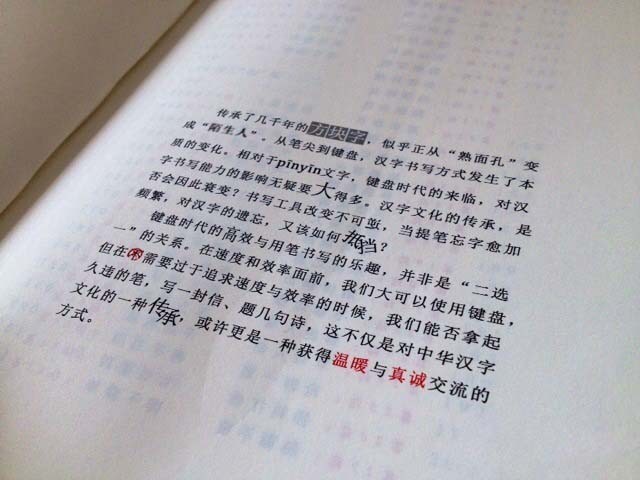 传承了几千年的方块字，似乎正从“熟面孔”变
成“陌生人”。从笔尖到键盘，汉字书写方式发生了本
质的变化。相对于pīnyīn文字，键盘时代的来临，对汉
字书写能力的影响无疑要大得多。汉字文化的传承，是
否会因此衰变？书写工具改变不可逆，当提笔忘字愈加
频繁，对汉字的遗忘，又该如何抵挡？
键盘时代的高效与用笔书写的乐趣，并非是“二选
一”的关系。在速度和效率面前，我们大可以使用键盘，
但在不需要过于追求速度与效率的时候，我们能否拿起
久违的笔，写一封信、题几句诗，这不仅是对中华汉字
文化的一种传承，或许更是一种获得温暖与真诚交流的
方式。